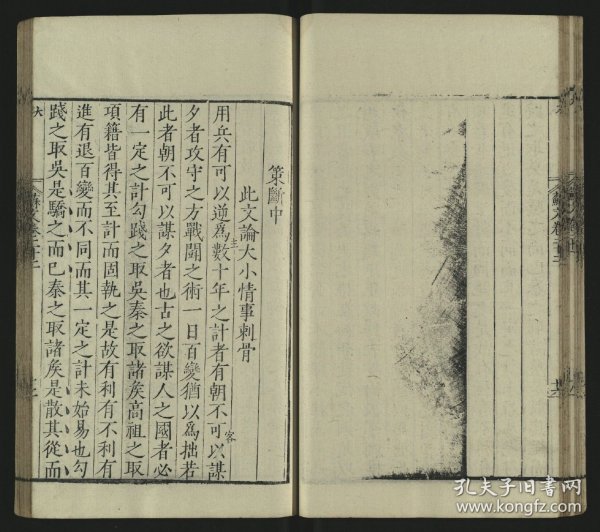 策斷中
此文論大小情事刺骨
用兵有可以逆為數十年之計者有朝不可以謀
夕者攻守之方戰鬪之術一日百變猶以為拙若
此者朝不可以謀夕者也古之欲謀人之國者必
有一定之計勾踐之取吳秦之取諸矦高祖之取
項籍皆得其至計而固執之是故有利有不利有
進有退百變而不同而其一定之計未始易也勾
踐之取吳是驕之而已秦之取諸矦是散其從而
主
客
蘇文卷二十二
孔夫子旧书网
www.kongfz.com